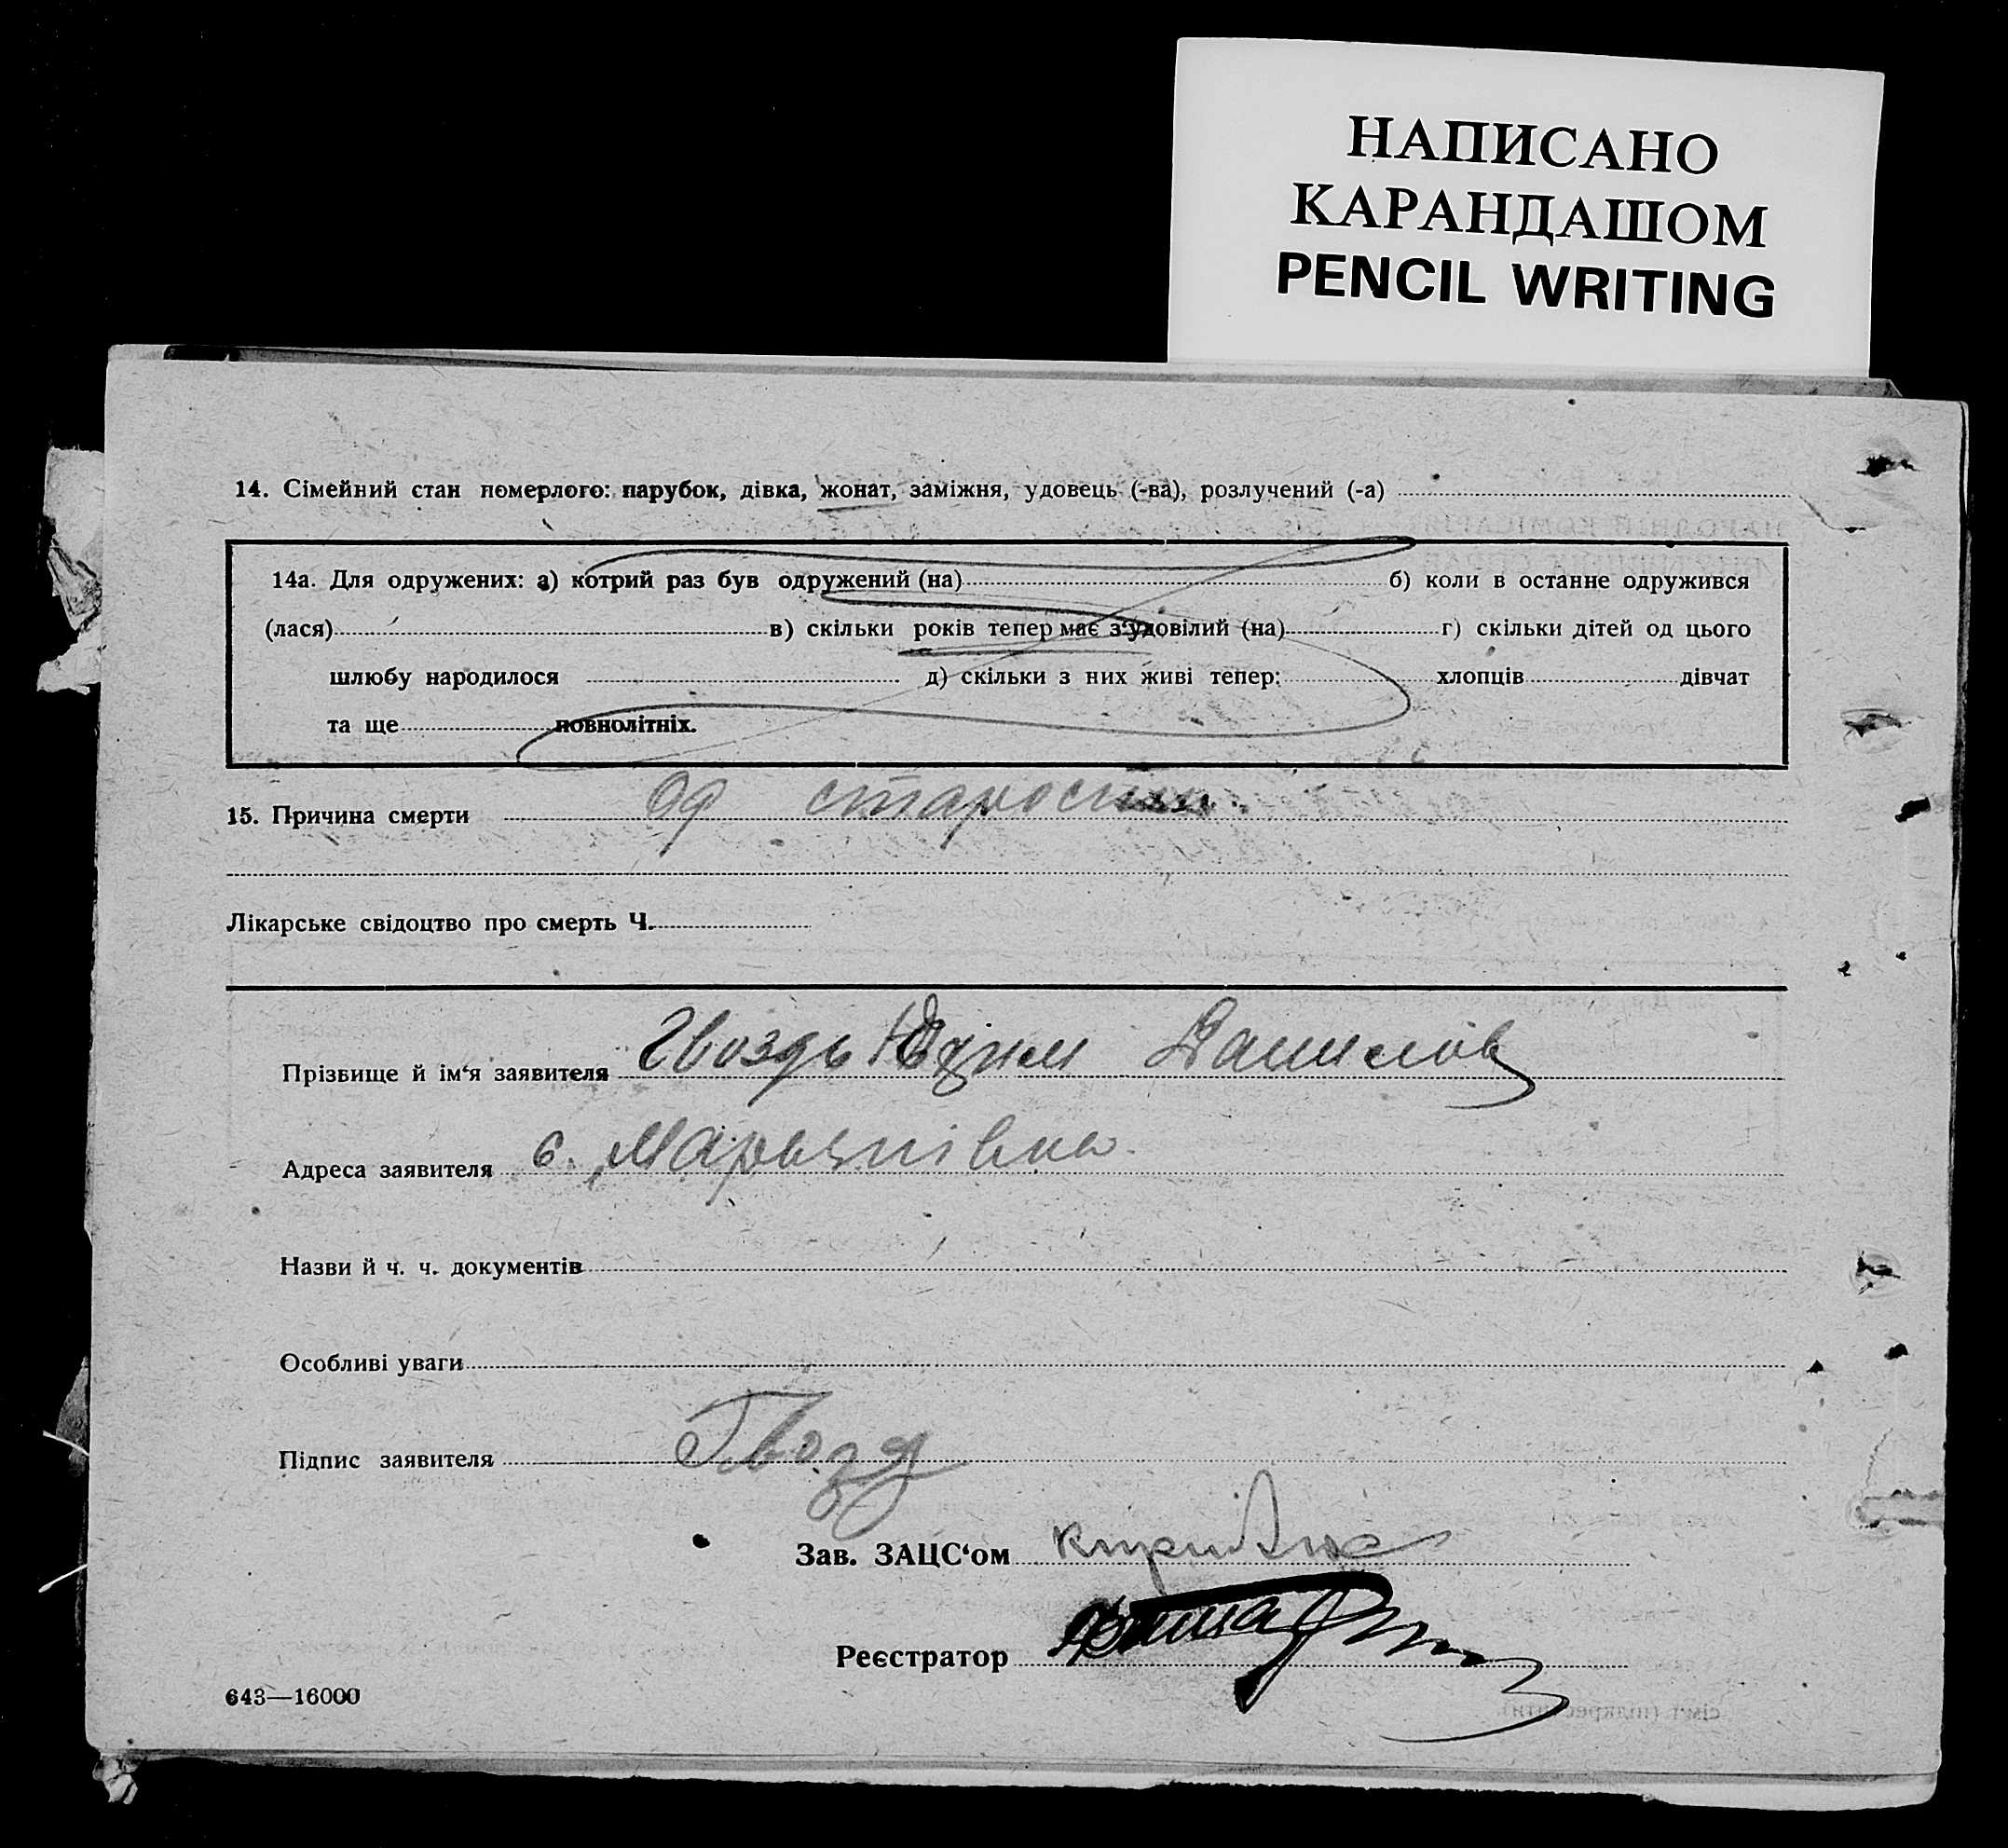 НАПИСАНО
КАРАНДАШОМ
PENCIL WRITING
14. Сімейний стан померлого: парубок, дівка, жонат, заміжня, удовець (-ва), розлучений (-а)
14а. Для одружених: а) котрий раз був одружений (на) б) коли в останне одружився
(лася) в) скільки років тепер має з'удовілий (на) г) скільки дітей од цього
шлюбу народилося д) скільки з них живі тепер: хлопців дівчат
та ще повнолітніх.
15. Причина смерти Од старости
Лікарське свідоцтво про смерть Ч.
Прізвище й ім'я заявителя Гвоздь Данилов
Адреса заявителя с.
Назви й ч. ч. документів
Особливі уваги
Підпис заявителя Гвозд
Зав. ЗАЦС'ом
Реєстратор
643—16000